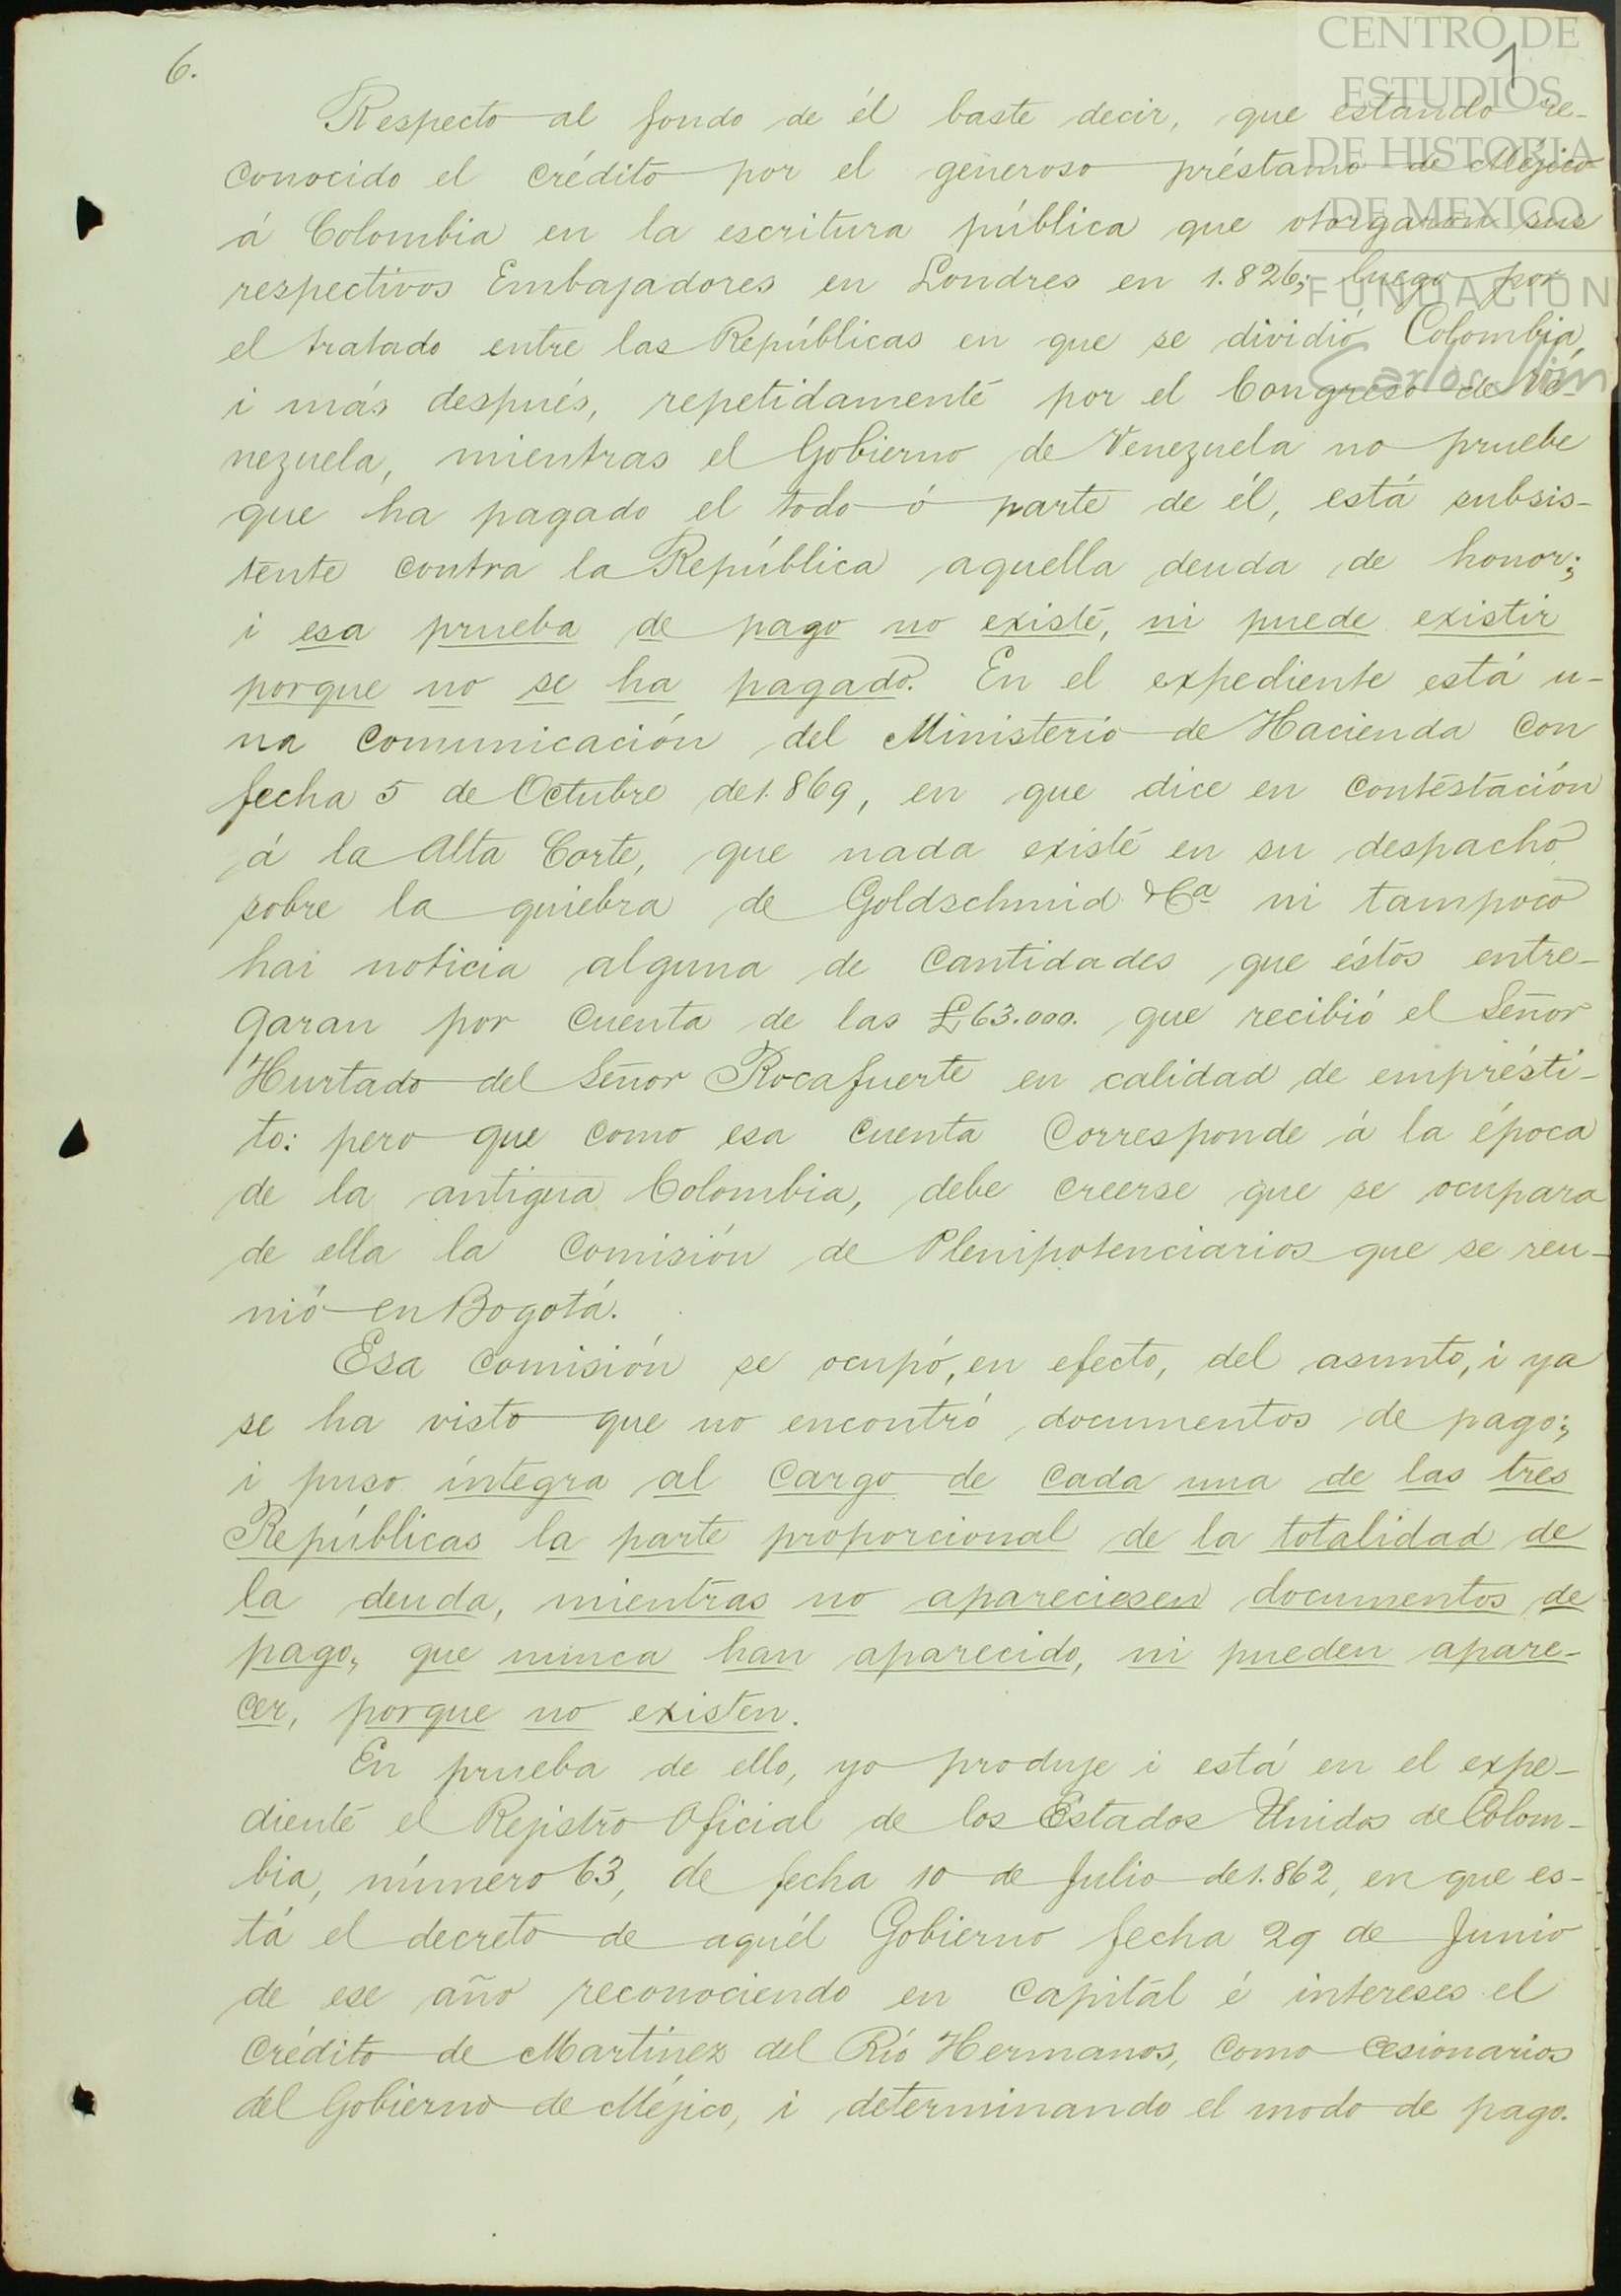 CENTRO DE
ESTUDIOS
DE HISTORIA
DE MEXICO
FUNDACIÓN
Carlos Slim
6.
1
Respecto al fondo de él baste decir, que estando re-
conocido el crédito por el generoso préstamo de Méjico
á Colombia en la escritura pública que otorgaron sus
respectivos Embajadores en Londres en 1.826; luego por
el tratado entre las Repúblicas en que se dividió Colombia,
i más después, repetidamente por el Congreso de Ve-
nezuela, mientras el Gobierno de Venezuela no pruebe
que ha pagado el todo ó parte de él, está subsis-
tente contra la República aquella deuda de honor;
i esa prueba de pago no existe, ni puede existir
porque no se ha pagado. En el expediente está u-
na comunicación del Ministerio de Hacienda con
fecha 5 de Octubre de 1.869, en que dice en contestación
á la Alta Corte, que nada existe en su despacho
sobre la quiebra de Goldschmid &Cª ni tampoco
hai noticia alguna de cantidades que éstos entre-
garan por cuenta de las £63.000. que recibió el Señor
Hurtado del Señor Rocafuerte en calidad de emprésti-
to: pero que como esa cuenta corresponde á la época
de la antigua Colombia, debe creerse que se ocupara
de ella la Comisión de Plenipotenciarios que se reu-
nió en Bogotá.
Esa comisión se ocupó, en efecto, del asunto, i ya
se ha visto que no encontró documentos de pago;
i puso íntegra al cargo de cada una de las tres
Repúblicas la parte proporcional de la totalidad de
la deuda, mientras no apareciesen documentos de
pago, que nunca han aparecido, ni pueden apare-
cer, porque no existen.
En prueba de ello, yo produje i está en el expe-
diente el Rejistro Oficial de los Estados Unidos de Colom-
bia, número 63, de fecha 10 de Julio de 1.862, en que es-
tá el decreto de aquél Gobierno fecha 29 de Junio
de ese año reconociendo en capital é intereses el
crédito de Martínez del Río Hermanos, como cesionarios
del Gobierno de Méjico, i determinando el modo de pago.